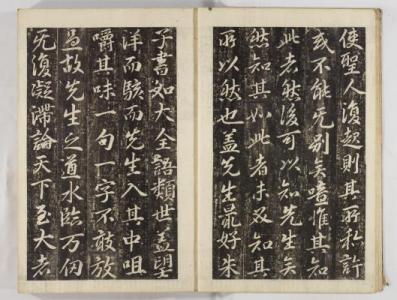 使聖人復起則其所私許
或不能先別矣噫惟其知
此者然後可以知先生矣
然知其如此者未及知其
所以然也盖先生最好朱
子書如大全語類世盖望
洋而駭而先生入其中咀
嚼其味一句一字不敢放
過故先生之道水臨万仞
无復凝滯論天下至大者